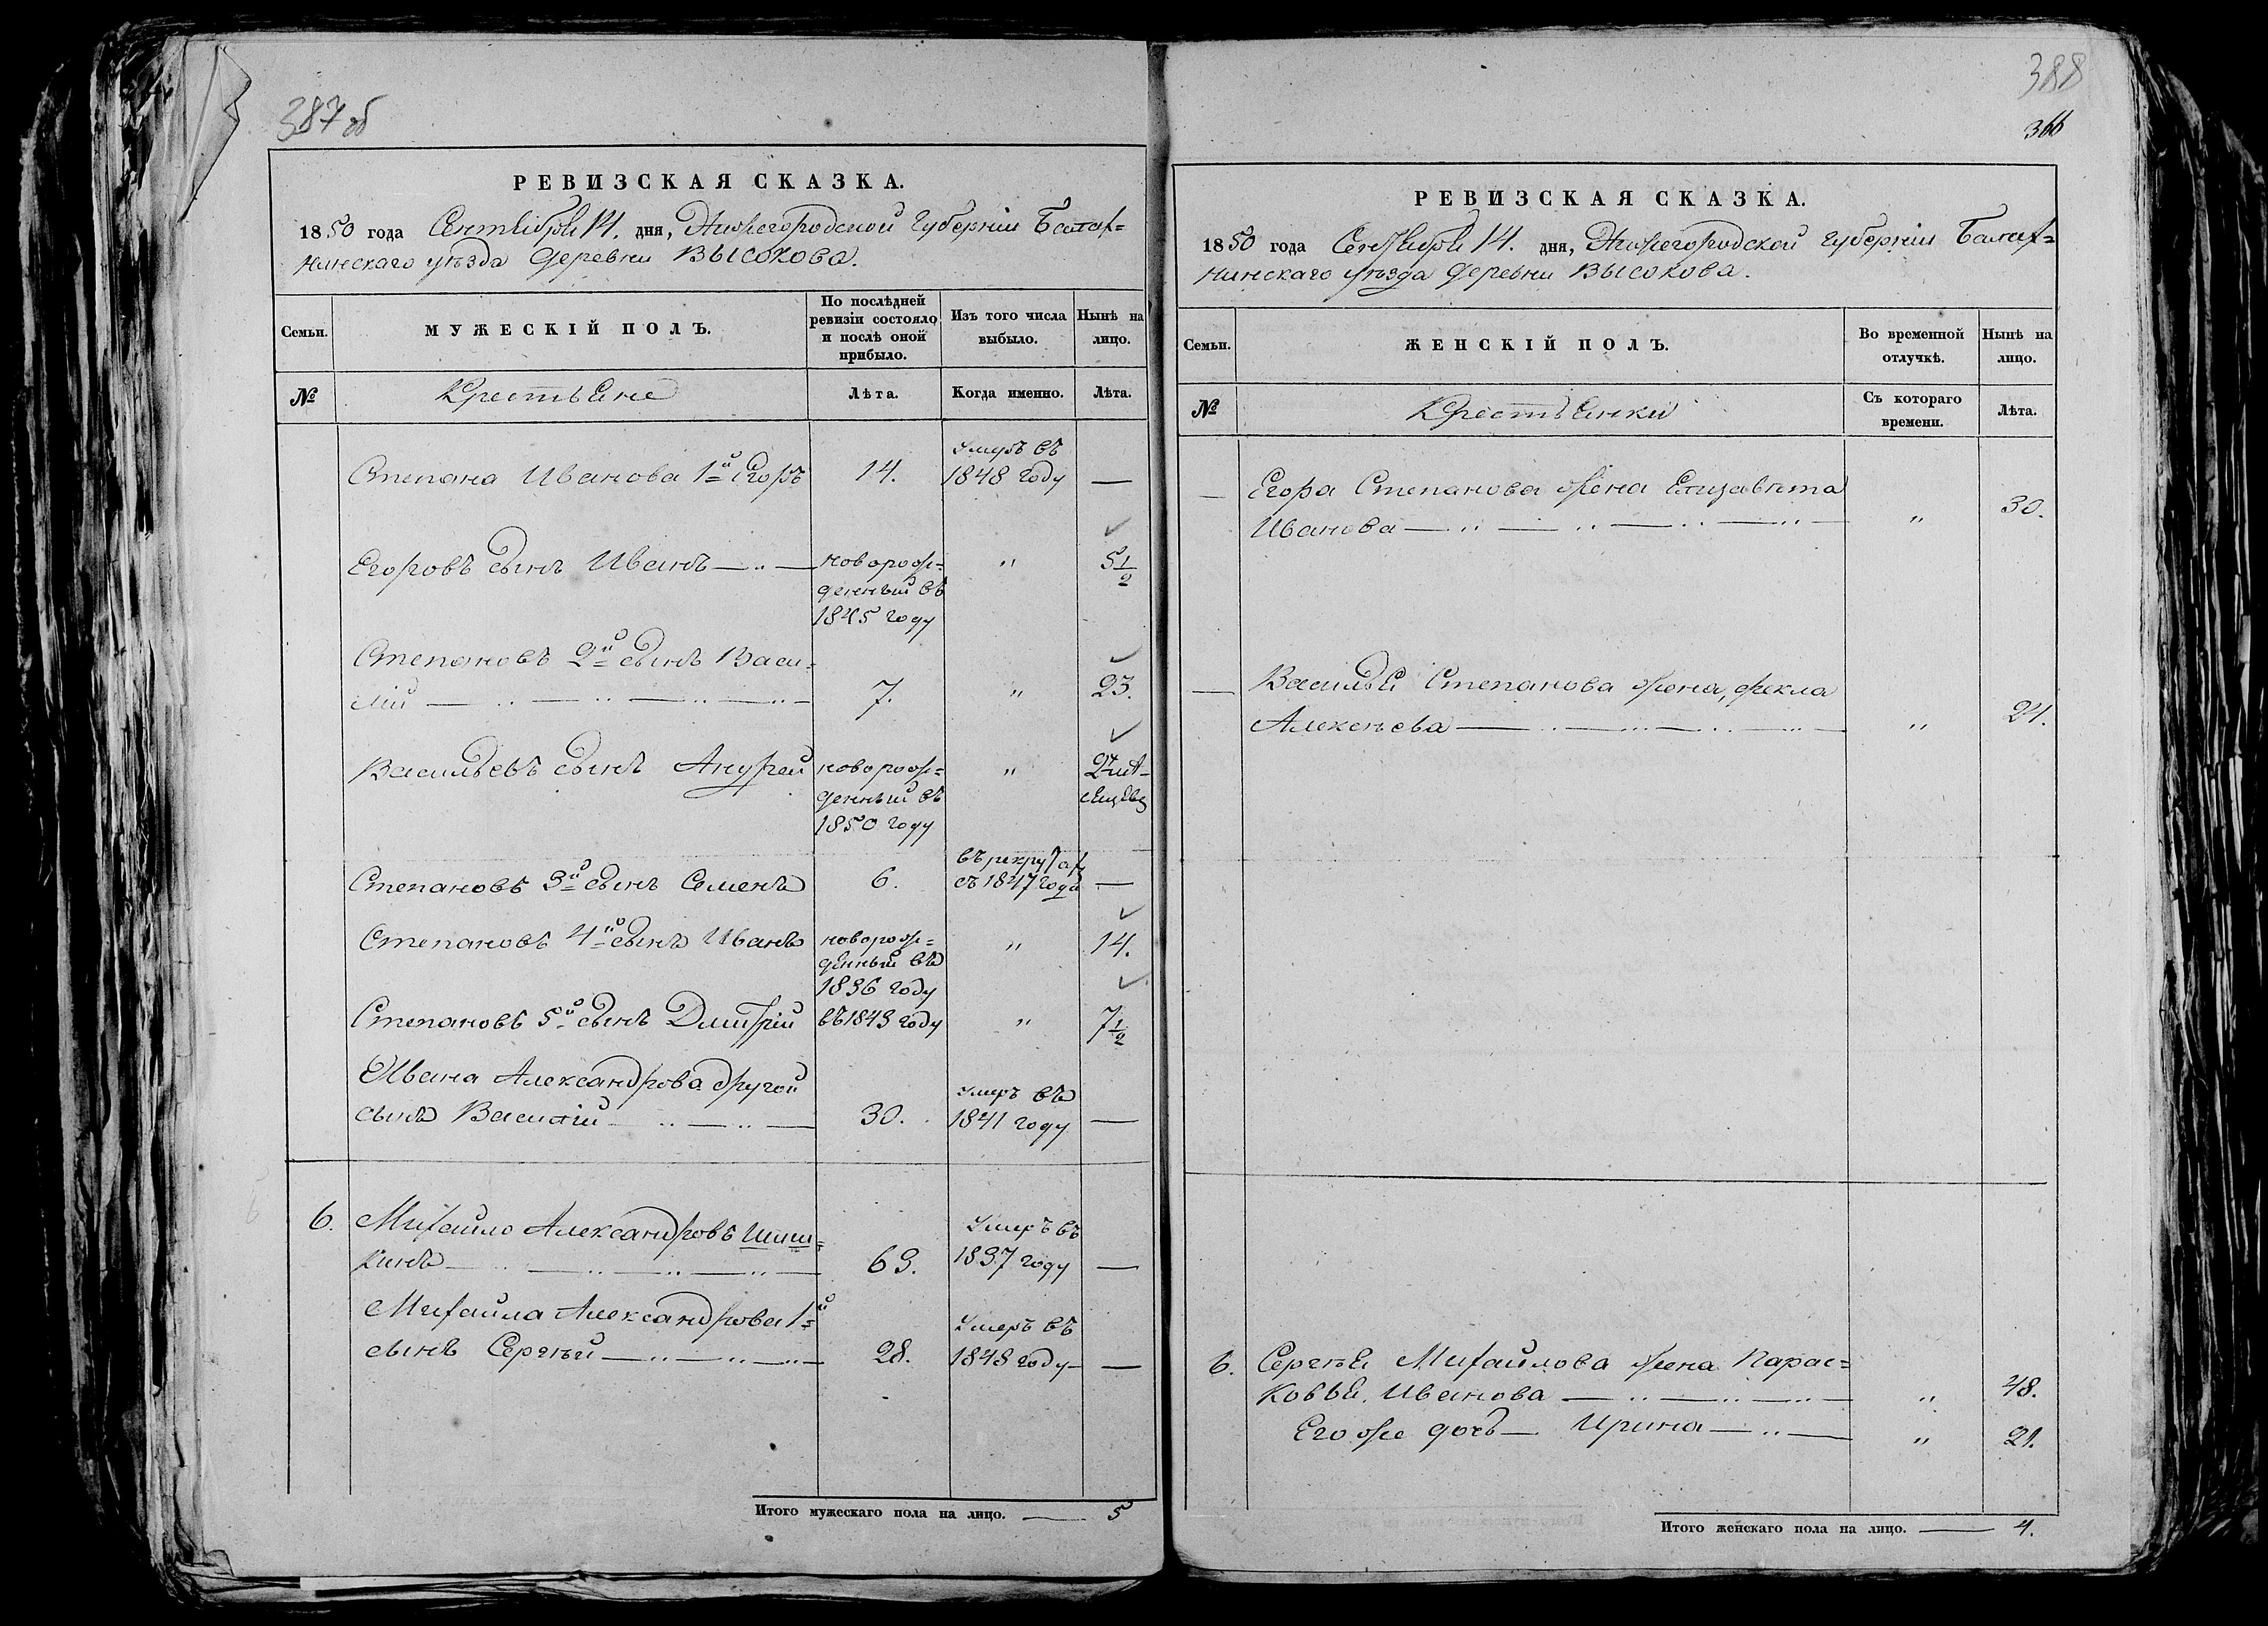 387 об
РЕВИЗСКАЯ СКАЗКА.
1850 года Сентября 14. дня, Нижегородской Губернiи Балах=
нинскаго уѣзда Деревни Высокова.
Семьи.
МУЖЕСКІЙ ПОЛЪ.
По послѣдней
ревизіи состояло
и послѣ оной
прибыло.
Изъ того числа
выбыло.
Нынѣ на
лицо.
№
Крестьяне
Лѣта.
Когда именно.
Лѣта.
Умеръ въ
Степана Иванова 1й Егоръ 14. 1848 году —
Егоровъ сынъ Иванъ новорож= " 5 1/2
денный въ
1845 году
Степановъ 2й сынъ Васи=
лій 7. " 23.
Васильевъ сынъ Андрей новорож= "
денный въ
1850 году
въ рекрутахъ
Степановъ 3й сынъ Семенъ 6. съ 1847 года —
Степановъ 4й сынъ Иванъ новорож= " 14.
денный въ
1836 году
Степановъ 5й сынъ Дмитрій въ 1843 году " 7 1/2
Ивана Александрова другой Умеръ въ
сынъ Василій 30. 1841 году —
6. Михайло Александровъ Шиш= Умеръ въ
кинъ 63. 1837 году —
Михайла Александрова 1й Умеръ въ
сынъ Сергѣй 28. 1848 году —
Итого мужескаго пола на лицо. — 5
388
366
РЕВИЗСКАЯ СКАЗКА.
1850 года Сентября 14. дня, Нижегородской Губерніи Балах=
нинскаго уѣзда Деревни Высокова.
Семьи.
ЖЕНСКІЙ ПОЛЪ.
Во временной
отлучкѣ.
Нынѣ на
лицо.
№
Крестьянки
Съ котораго
времени.
Лѣта.
— Егора Степанова жена Елизавѣта
Иванова " 30.
— Василья Степанова жена, Фекла
Алексѣева " 24.
6. Сергѣя Михайлова жена Парас=
ковья Иванова " 48.
Его же дочь — Ирина " 21.
Итого женскаго пола на лицо. — 4.